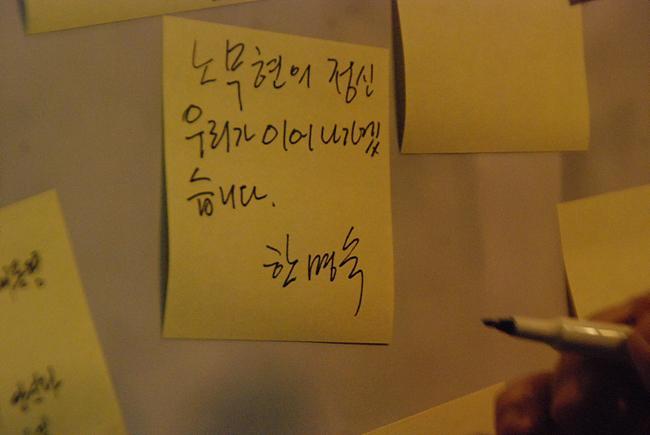 노무현의 정신
우리가 이어나가겠
습니다.
한명숙